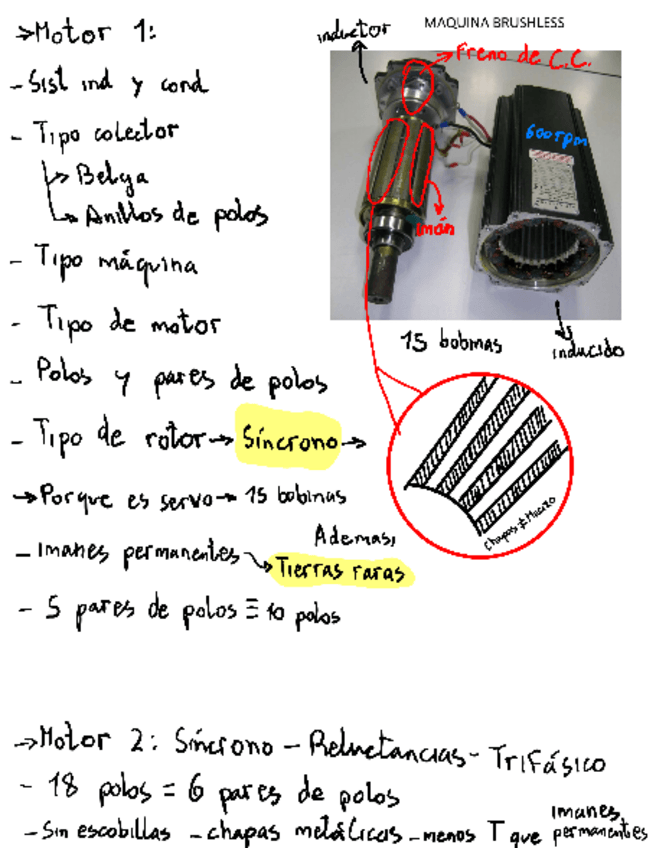 MAQUINA BRUSHLESS
→Motor 1:
inductor
Freno de C.C.
- Sist ind y cond
- Tipo colector
→ Belga
→ Anillos de polos
600rpm
imán
- Tipo máquina
- Tipo de motor
15 bobinas
inducido
- Polos y pares de polos
- Tipo de rotor → Síncrono →
→ Porque es servo → 15 bobinas
Chapas ≠ Macizo
Ademas,
- Imanes permanentes → Tierras raras
- 5 pares de polos ≡ 10 polos
→Motor 2: Síncrono - Reluctancias - Trifásico
- 18 polos = 6 pares de polos
- Sin escobillas - chapas metálicas - menos T que imanes permanentes